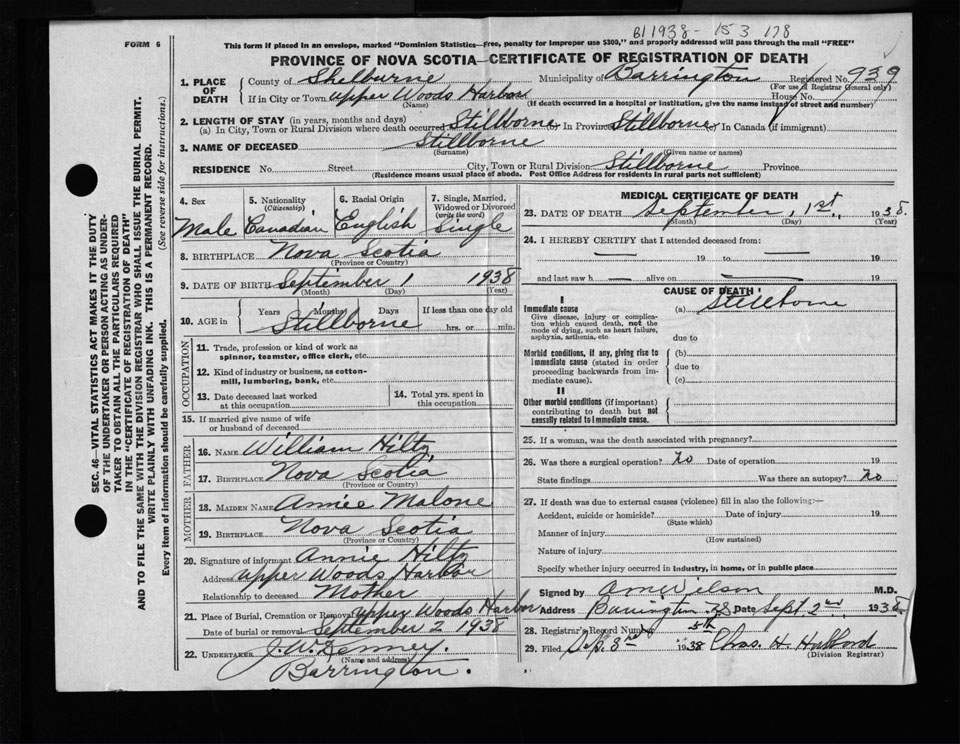 B 1938 - 15 3 178
FORM 6
This form if placed in an envelope, marked "Dominion Statistics—Free, penalty for improper use $300," and properly addressed will pass through the mail "FREE"
PROVINCE OF NOVA SCOTIA—CERTIFICATE OF REGISTRATION OF DEATH
1. PLACE OF DEATH County of Shelburne Municipality of Barrington Registered No. 939
(For use of Registrar General only)
If in City or Town upper Woods Harbor House No.
(Name) (If death occurred in a hospital or institution, give the name instead of street and number)
2. LENGTH OF STAY (in years, months and days)
(a) In City, Town or Rural Division where death occurred Stillborne (b) In Province Stillborne (c) In Canada (if immigrant)
3. NAME OF DECEASED Stillborne
(Surname) (Given name or names)
RESIDENCE No. Street City, Town or Rural Division Stillborne Province
(Residence means usual place of abode. Post Office Address for residents in rural parts not sufficient)
4. Sex 5. Nationality (Citizenship) 6. Racial Origin 7. Single, Married, Widowed or Divorced (write the word)
Male Canadian English Single
8. BIRTHPLACE Nova Scotia
(Province or Country)
9. DATE OF BIRTH September 1 1938
(Month) (Day) (Year)
10. AGE in Years Months Days If less than one day old
Stillborne hrs. or min.
OCCUPATION
11. Trade, profession or kind of work as spinner, teamster, office clerk, etc.
12. Kind of industry or business, as cotton-mill, lumbering, bank, etc.
13. Date deceased last worked at this occupation
14. Total yrs. spent in this occupation
15. If married give name of wife or husband of deceased
FATHER
16. NAME William Hiltz
17. BIRTHPLACE Nova Scotia
(Province or Country)
MOTHER
18. MAIDEN NAME Annie Malone
19. BIRTHPLACE Nova Scotia
(Province or Country)
20. Signature of informant Annie Hiltz
Address upper Woods Harbor
Relationship to deceased Mother
21. Place of Burial, Cremation or Removal upper Woods Harbor
Date of burial or removal September 2 1938
22. UNDERTAKER J. W. Kenney.
(Name and address)
Barrington.
MEDICAL CERTIFICATE OF DEATH
23. DATE OF DEATH September, 1st, 1938.
(Month) (Day) (Year)
24. I HEREBY CERTIFY that I attended deceased from:
— 19 to — 19
and last saw h — alive on — 19
CAUSE OF DEATH
I
Immediate cause (a) Stillborne
Give disease, injury or complication which caused death, not the mode of dying, such as heart failure, asphyxia, asthenia, etc.
due to
Morbid conditions, if any, giving rise to immediate cause (stated in order proceeding backwards from immediate cause).
(b)
due to
(c)
II
Other morbid conditions (if important) contributing to death but not causally related to immediate cause.
25. If a woman, was the death associated with pregnancy?
26. Was there a surgical operation? No Date of operation 19
State findings Was there an autopsy? No
27. If death was due to external causes (violence) fill in also the following:—
Accident, suicide or homicide? Date of injury 19
(State which)
Manner of injury
(How sustained)
Nature of injury
Specify whether injury occurred in industry, in home, or in public place
Signed by Wilson M.D.
Address Barrington N.S. Date Sept 2nd, 1938
28. Registrar's Record Number 5th
29. Filed Sep. 3rd 1938 Chas. H.
(Division Registrar)
SEC. 46—VITAL STATISTICS ACT MAKES IT THE DUTY
OF THE UNDERTAKER OR PERSON ACTING AS UNDERTAKER TO OBTAIN ALL THE PARTICULARS REQUIRED
IN THE "CERTIFICATE OF REGISTRATION OF DEATH"
AND TO FILE THE SAME WITH THE DIVISION REGISTRAR WHO SHALL ISSUE THE BURIAL PERMIT.
WRITE PLAINLY WITH UNFADING INK. THIS IS A PERMANENT RECORD.
Every item of information should be carefully supplied. (See reverse side for instructions.)